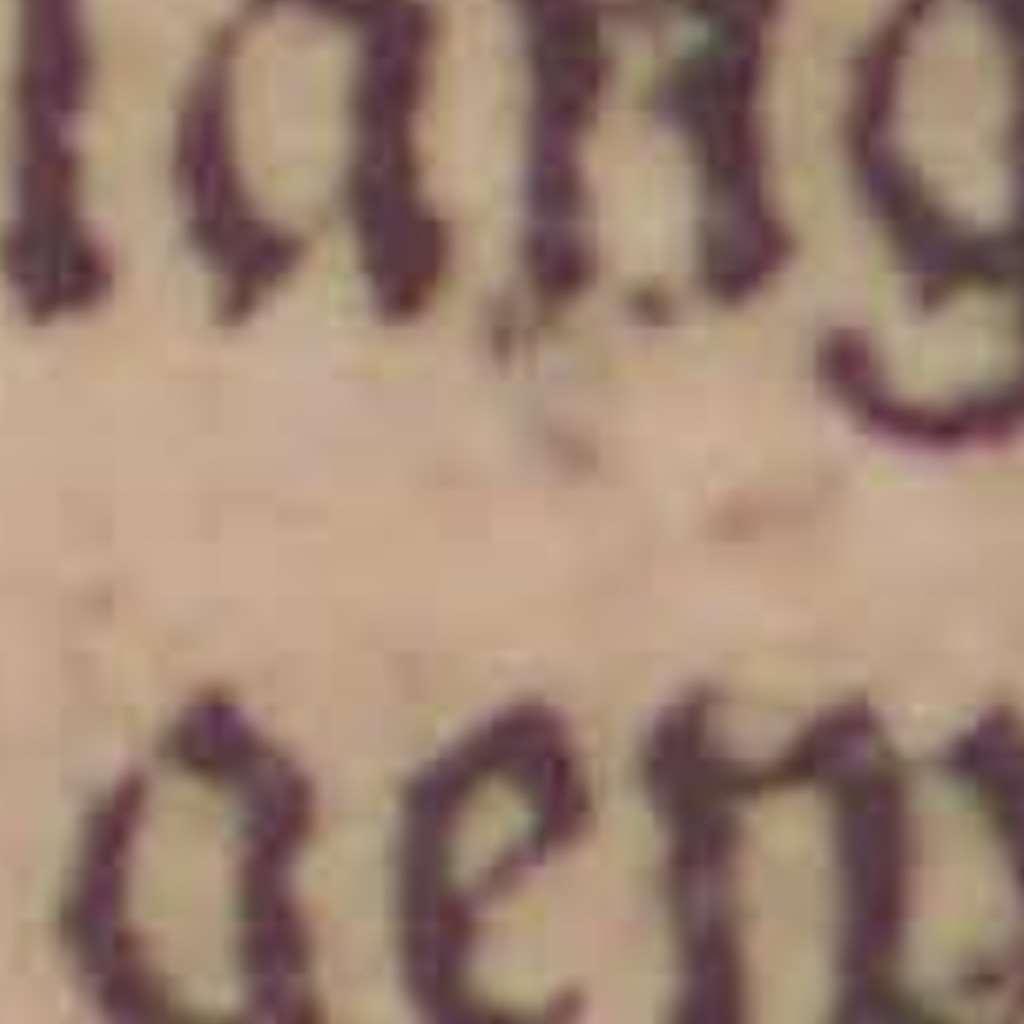 lang
aen